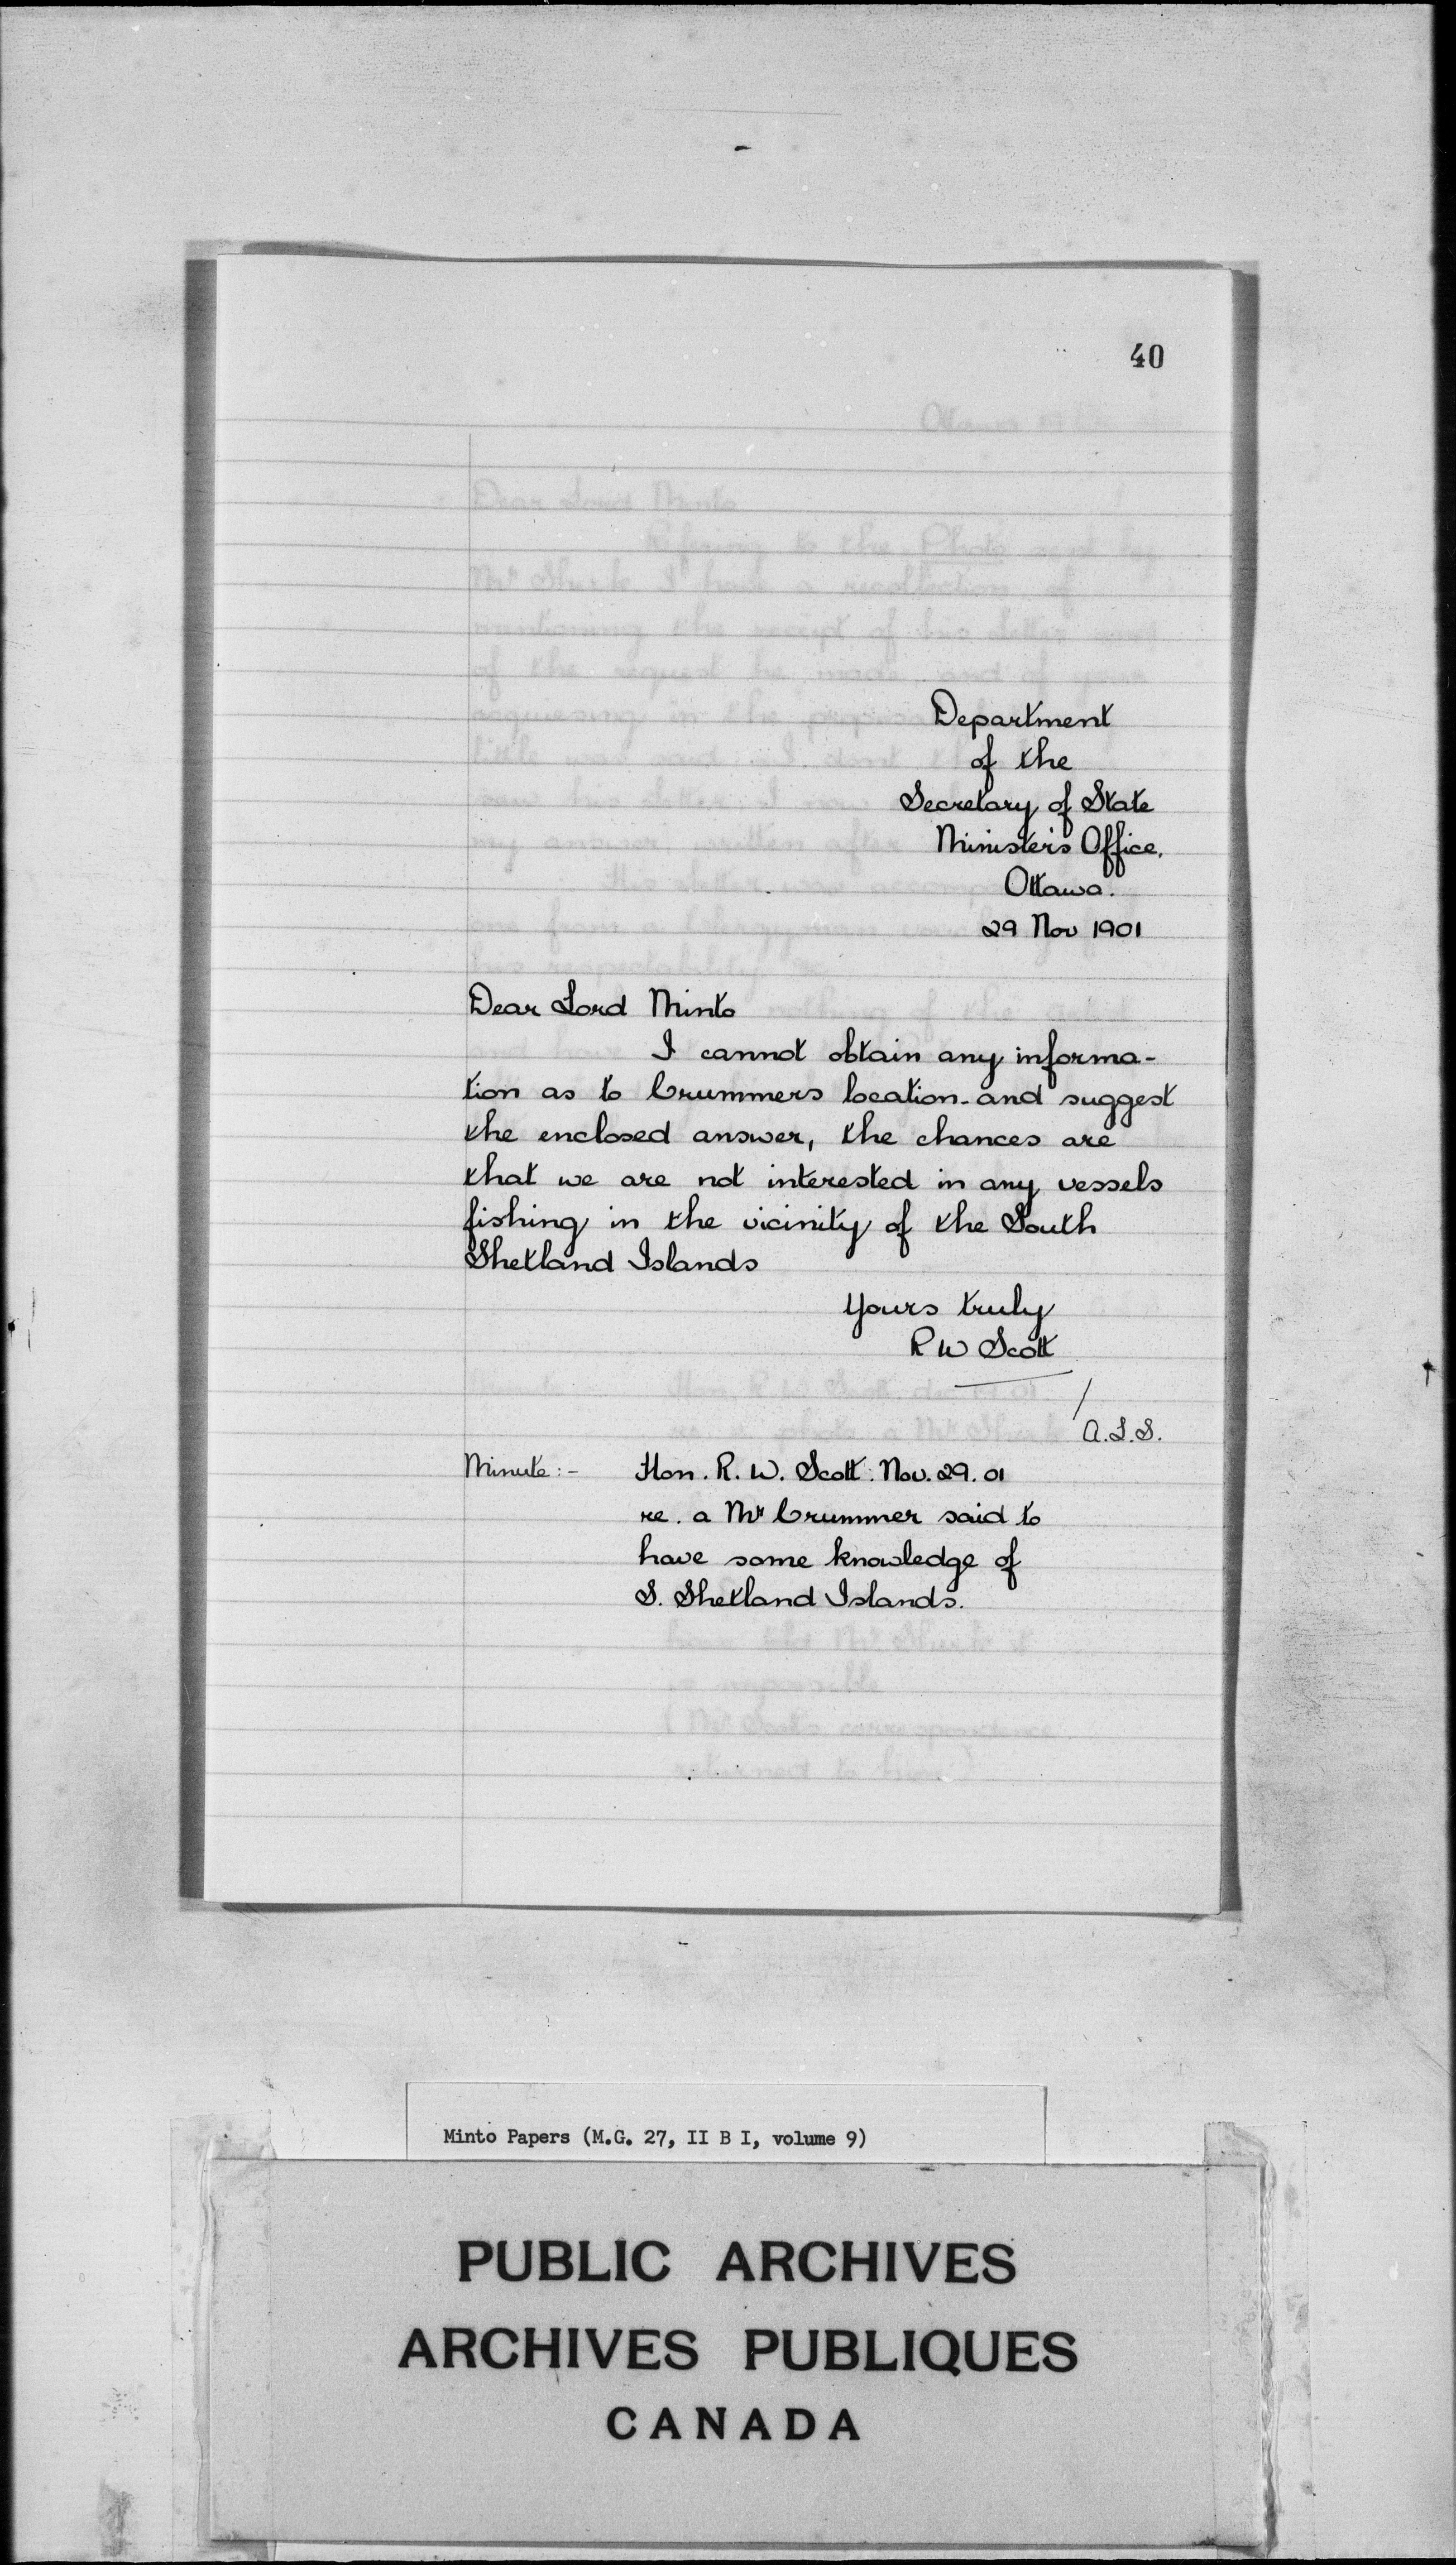 40
Department
of the
Secretary of State
Minister's Office.
Ottawa.
29 Nov 1901
Dear Lord Minto
I cannot obtain any informa-
tion as to Crummers location - and suggest
the enclosed answer, the chances are
that we are not interested in any vessels
fishing in the vicinity of the South
Shetland Islands
Yours truly
R W Scott
/
A.L.S.
Minute:- Hon. R. W. Scott. Nov. 29. 01
re. a Mr Crummer said to
have some knowledge of
S. Shetland Islands.
Minto Papers (M.G. 27, II B I, volume 9)
PUBLIC ARCHIVES
ARCHIVES PUBLIQUES
CANADA